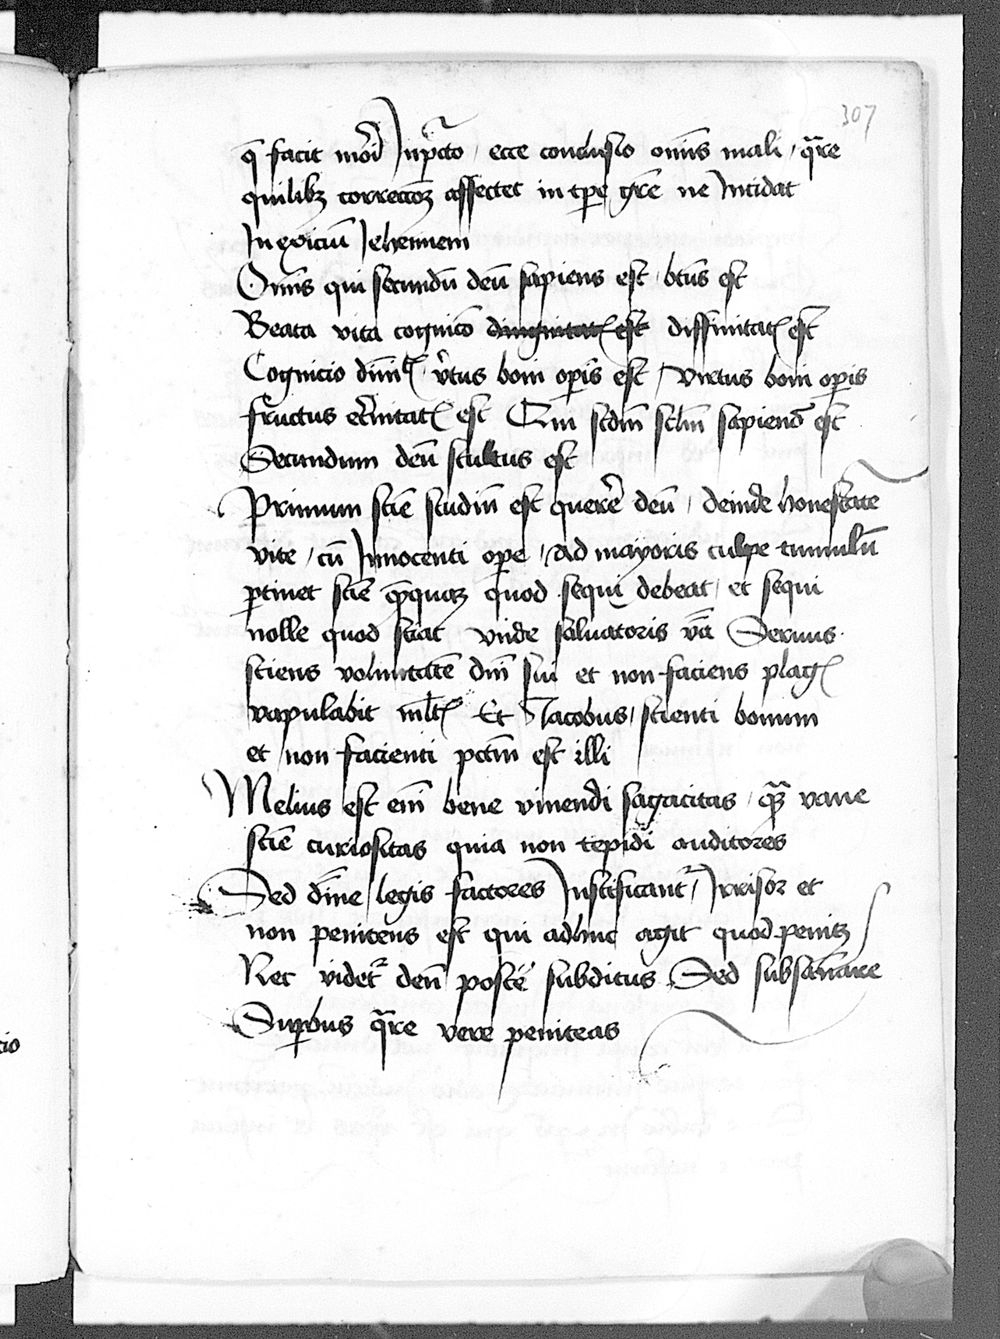 307
q̄ facit mōd Inp̄cto / ecce conclusio oīnis mali / qr̄e
quilibz correccōz affectet in tp̄e gr̄e ne Incidat
In exiciū Jehennem
Om̄s qui secundū deū sapiens est / bt̄us est
Beata vita cognico diuinitat̄ est diffinitat̄ est
Cognicio diuīt̄ / v̄tus boni op̄is est / virtus boni op̄is
fructus et̄nitat̄ est Qui scdm sclm̄ sapiens est
Secundum deū stultus est
Primum scīe studiū est querēr deū / deinde honestate
vite / cū Innocenti ope / Ad mayoris culpe tumulū
p̄tinet scīe quēquaz quod sequi debeat / et sequi
nolle quod sciat vnde saluatoris vīa Seruus
sciens volūntatē dn̄i sui et non faciens plaḡ
vapulabit ml̄t̄ Et Jacobus / scienti bonum
et non facienti pctm̄ est illi
Melius est eni̅ bene viuendi sagacitas / qm̄ vane
scīe curiositas quia non tepidi auditores
Sed dīne legis factores Iustificant̄ / Irrisor et
non penitens est qui adhuc agit quod penitz
Nec videt̄ deū poscē subditus Sed subsannare
Superbus qr̄e vere peniteas